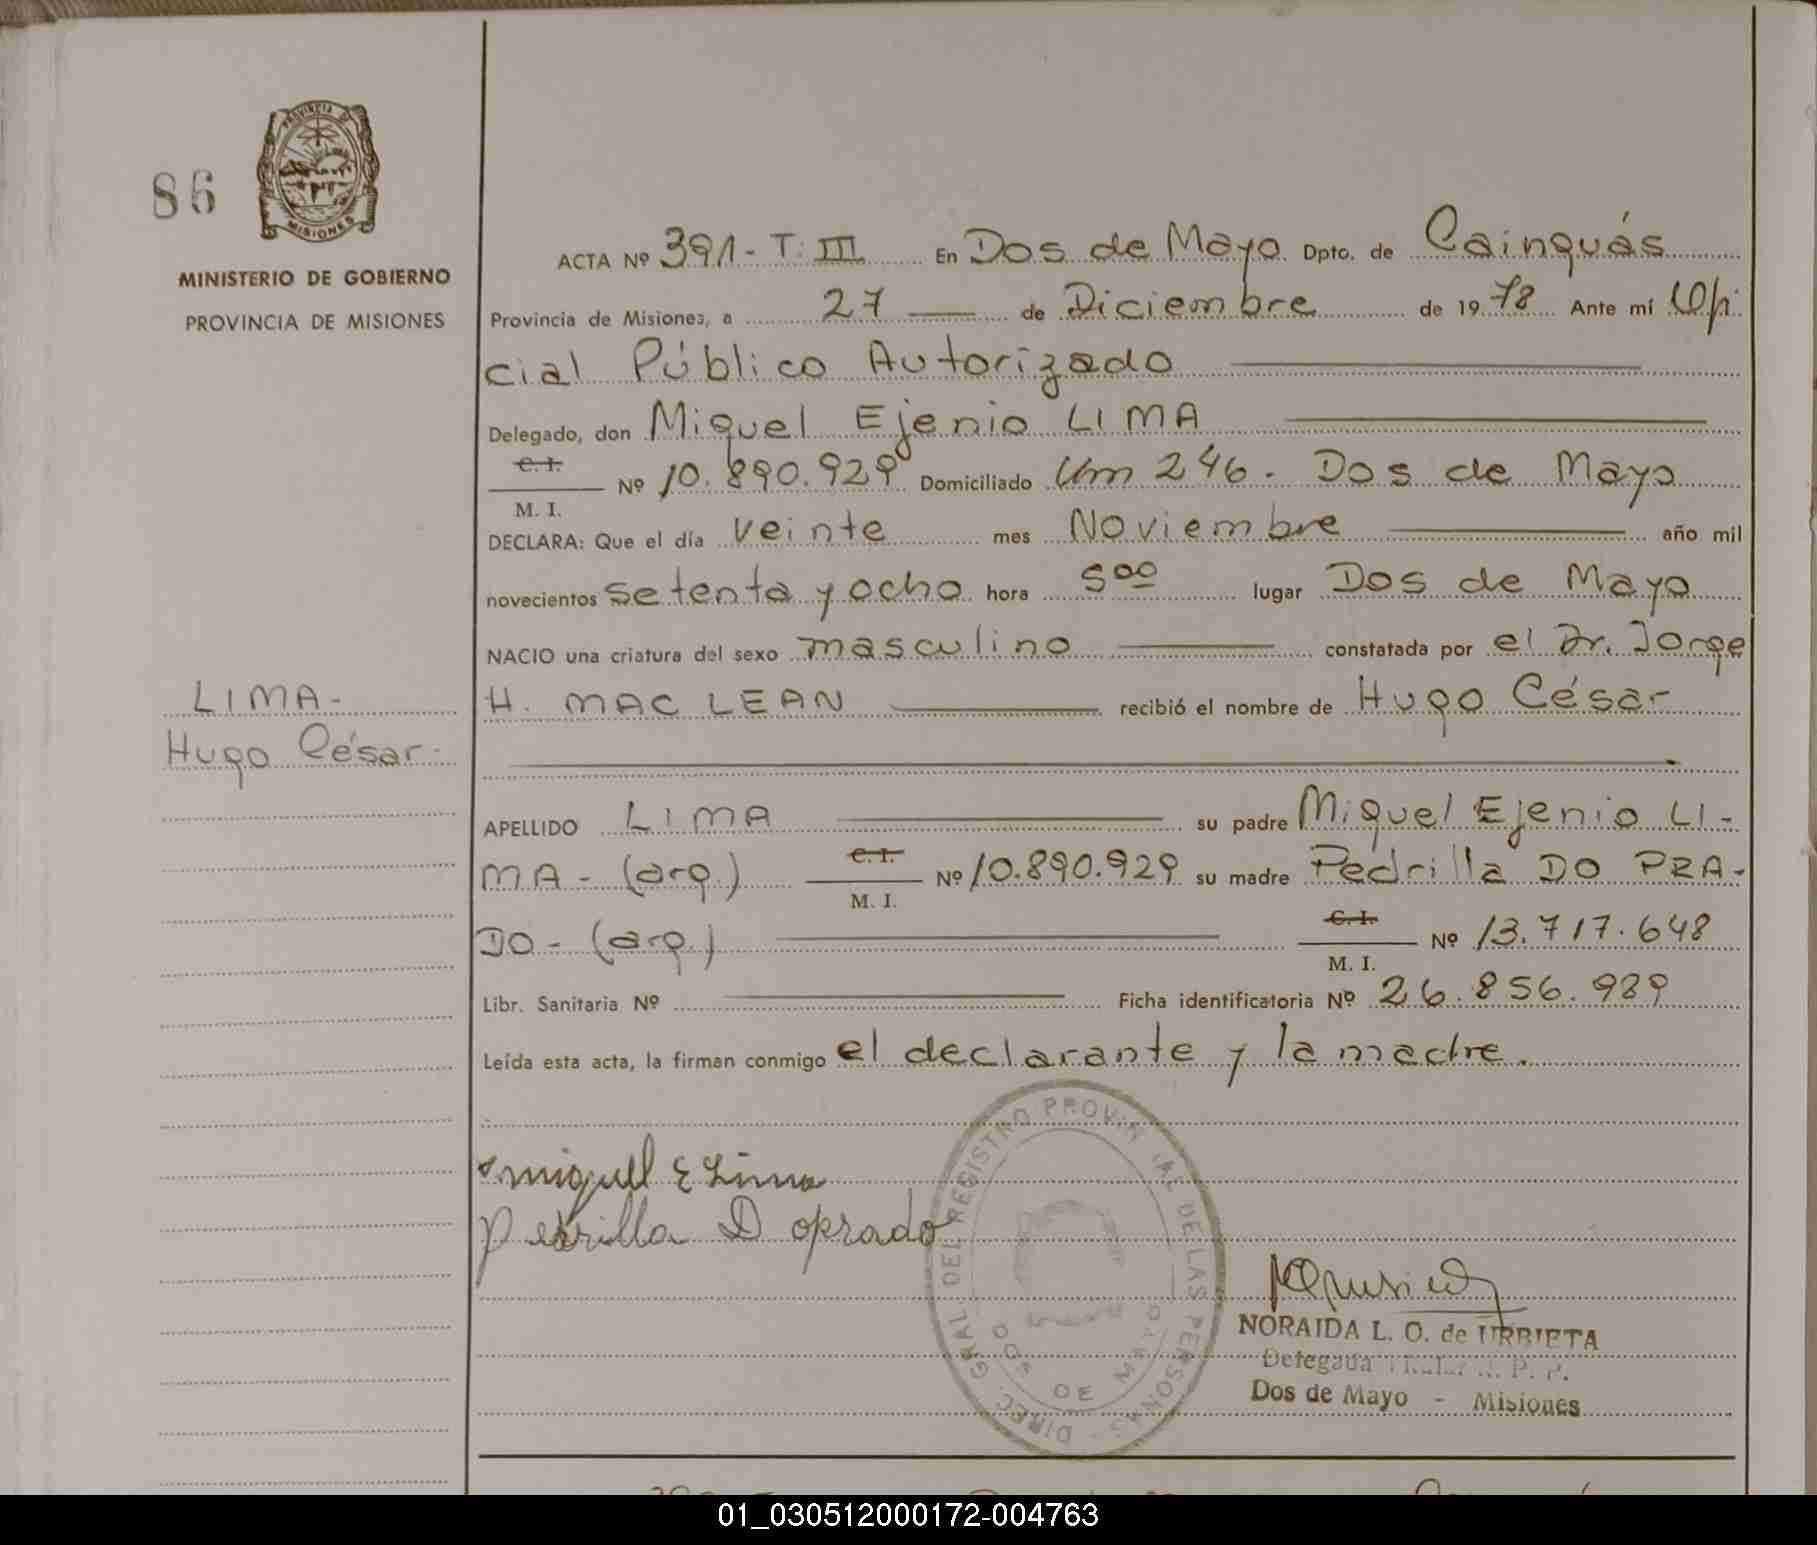 86
PROVINCIA DE
MISIONES
MINISTERIO DE GOBIERNO
PROVINCIA DE MISIONES
ACTA Nº 391- T: III En Dos de Mayo Dpto. de Cainguás
Provincia de Misiones, a 27 — de Diciembre de 1978 Ante mí Ofi
cial Público Autorizado
Delegado, don Miguel Ejenio LIMA
C. I.
M. I. Nº 10.890.929 Domiciliado Km 246. Dos de Mayo
DECLARA: Que el día veinte mes Noviembre año mil
novecientos setenta y ocho hora 5 00 lugar Dos de Mayo
NACIO una criatura del sexo masculino constatada por el Dr. Jorge
H. MAC LEAN recibió el nombre de Hugo César
LIMA-
Hugo César.
APELLIDO LIMA su padre Miguel Ejenio LI-
MA- (arg.) C. I. M. I. Nº 10.890.929 su madre Pedrilla DO PRA-
DO- (arg.) C. I. M. I. Nº 13.717.648
Libr. Sanitaria Nº Ficha identificatoria Nº 26.856.989
Leída esta acta, la firman conmigo el declarante y la madre.
Miguel E Lima
Pedrilla D oprado
DIREC. GRAL. DEL REGISTRO PROVINCIAL DE LAS PERSONAS
DOS DE MAYO
NORAIDA L. O. de URBIETA
Delegada Titular R. P. P.
Dos de Mayo - Misiones
01_030512000172-004763